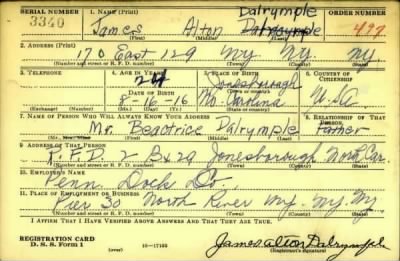 SERIAL NUMBER 1. NAME (Print) Dalrymple ORDER NUMBER
3340 James Alton Dalrymple 497
(First) (Middle) (Last)
2. ADDRESS (Print)
170 East 129 NY. NY. NY
(Number and street or R. F. D. number) (Town) (County) (State)
3. TELEPHONE 4. AGE IN YEARS 5. PLACE OF BIRTH 6. COUNTRY OF CITIZENSHIP
24 Jonesborough
DATE OF BIRTH (Town or county)
8-16-16 No. Carolina U.S.A
(Exchange) (Number) (Mo.) (Day) (Yr.) (State or country)
7. NAME OF PERSON WHO WILL ALWAYS KNOW YOUR ADDRESS 8. RELATIONSHIP OF THAT PERSON
Mr. Beatrice Dalrymple Father
(Mr., Mrs., Miss) (First) (Middle) (Last)
9. ADDRESS OF THAT PERSON
R.F.D. 2 Bx 29 Jonesborough North Car.
(Number and street or R. F. D. number) (Town) (County) (State)
10. EMPLOYER'S NAME
Penn. Dock
11. PLACE OF EMPLOYMENT OR BUSINESS
Pier 30 North River NY. NY. NY.
(Number and street or R. F. D. number) (Town) (County) (State)
I AFFIRM THAT I HAVE VERIFIED ABOVE ANSWERS AND THAT THEY ARE TRUE.
REGISTRATION CARD
D. S. S. Form 1 (over) 16—17105 James Alton Dalrymple
(Registrant's signature)